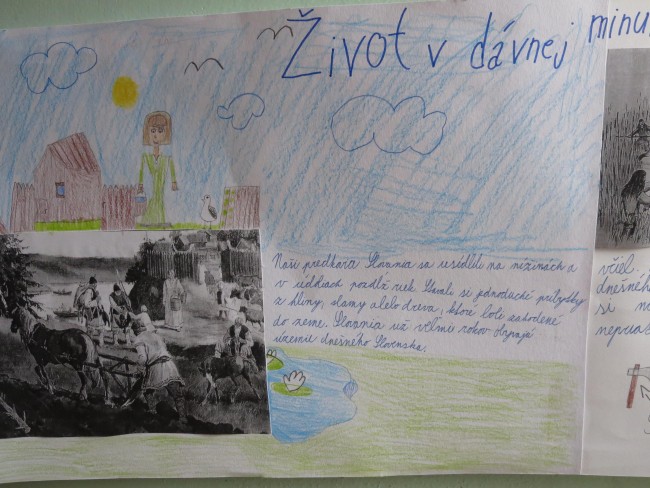 Život v dávnej minu
Naši predkovia Slovania sa usídlili na nížinách a
v údoliach pozdĺž riek. Stavali si jednoduché príbytky
z hliny, slamy alebo dreva, ktoré boli zahĺbené
do zeme. Slovania už veľmi rokov obývajú
územie dnešného Slovenska.
včiel,
dnešného
si
nepoz